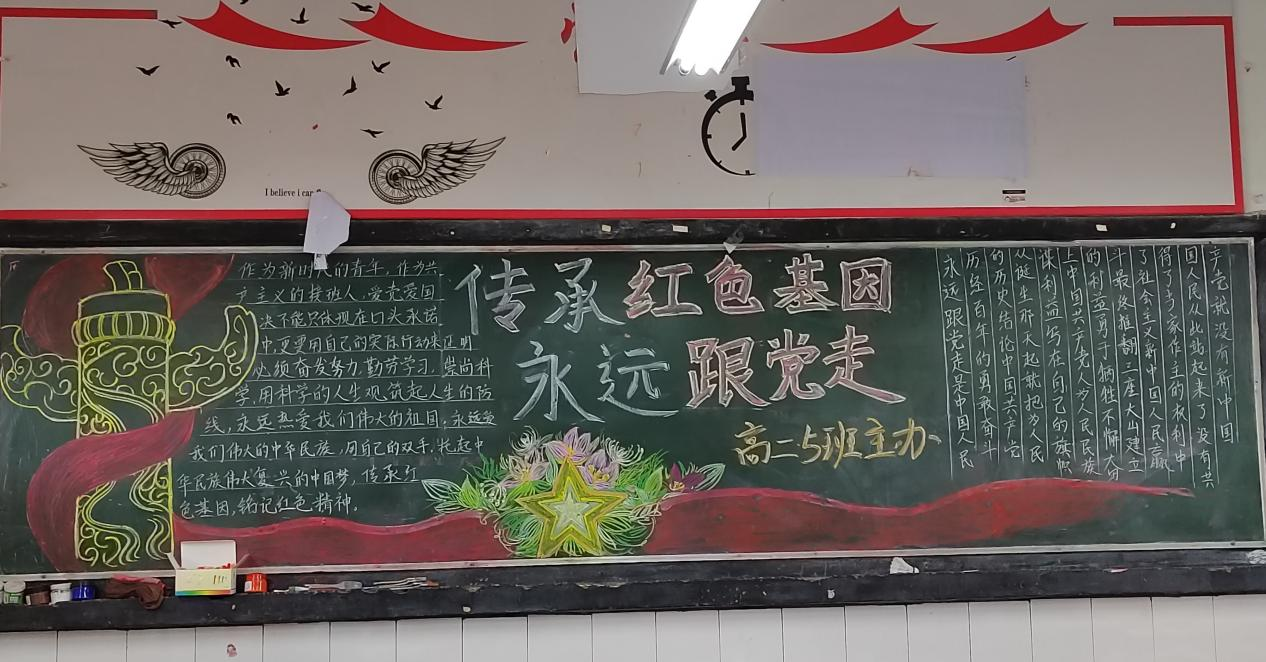 I believe i can
作为新时代的青年，作为共
产主义的接班人，爱党爱国
决不能只体现在口头承诺
中,更要用自己的实际行动来证明
必须奋发努力,勤劳学习,崇尚科
学,用科学的人生观,筑起人生的防
线,永远热爱我们伟大的祖国,永远爱
我们伟大的中华民族,用自己的双手,托起中
华民族伟大复兴的中国梦,传承红
色基因,铭记红色精神。
传承红色基因
永远跟党走
高二5班主办
永远跟党走是中国人民
历经百年的勇敢奋斗
的历史结论中国共产党
从诞生那天起就把为人民
谋利益写在自己的旗帜
上中国共产党人为人民民族
的利益勇于牺牲不懈
斗最终推翻三座大山建立
了社会主义新中国人民赢
得了当家作主的权利中
国人民从此站起来了没有共
产党就没有新中国